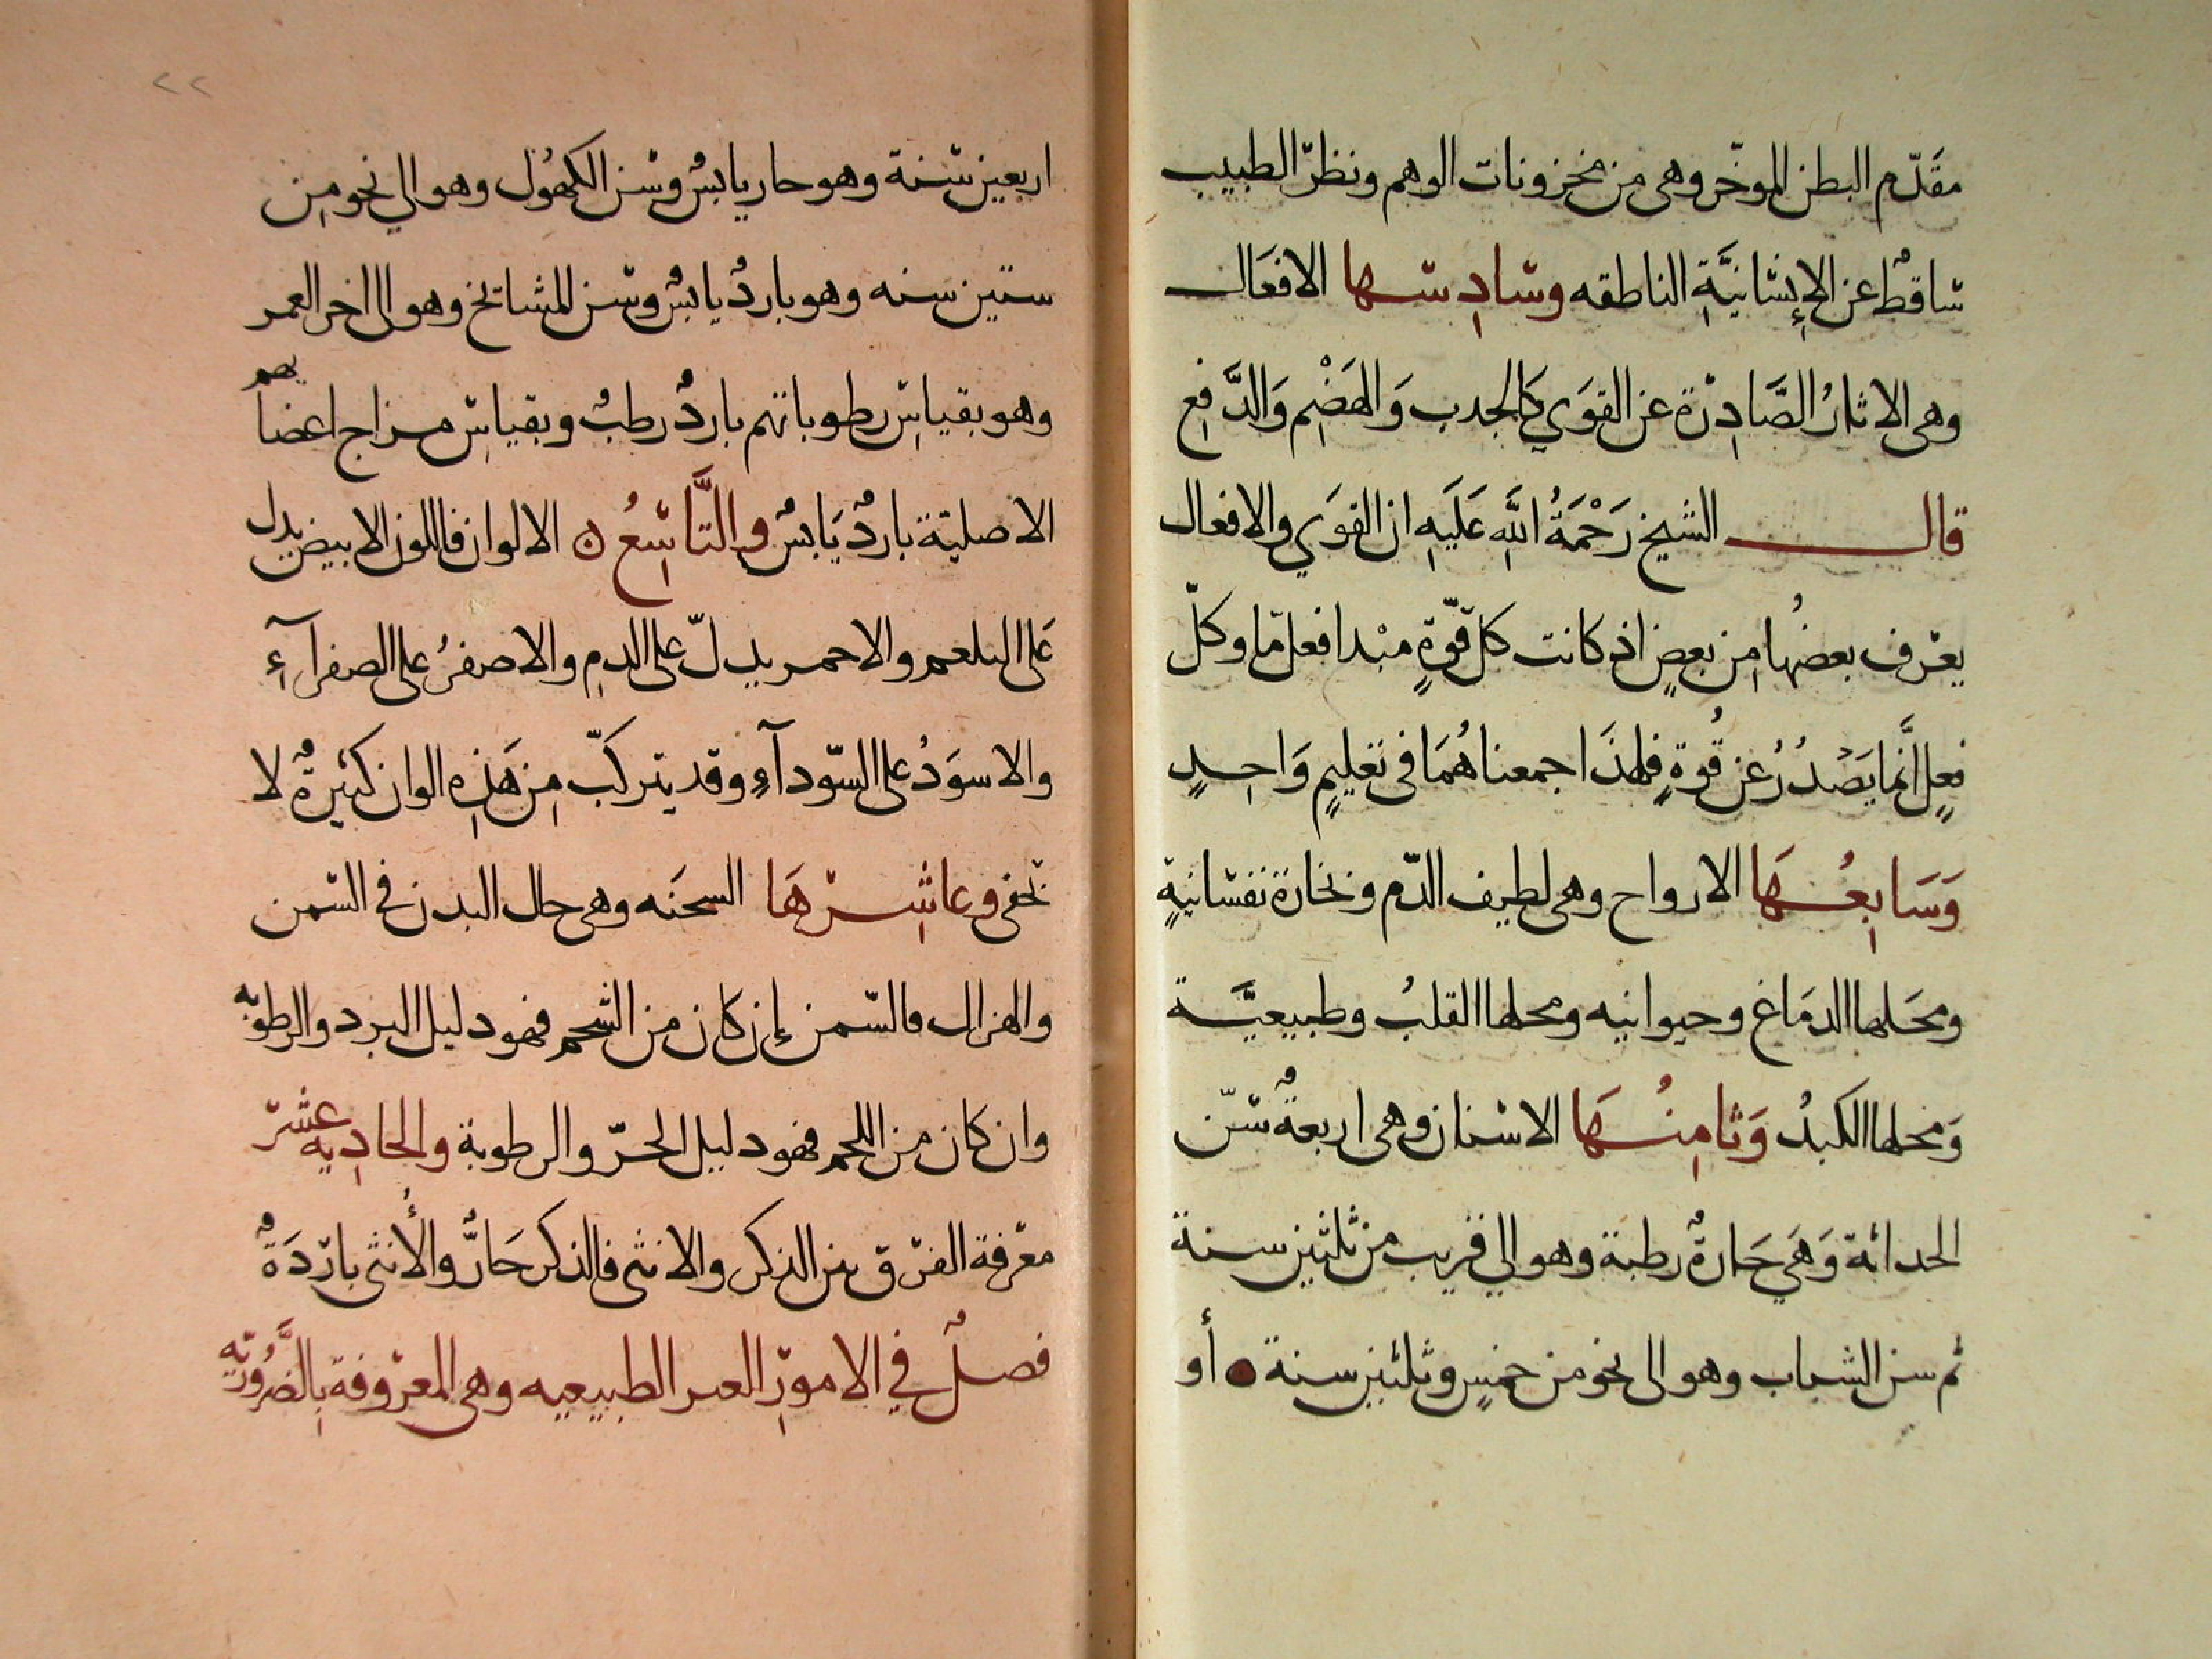 مقَدّم البطن الموخّر وهى من مخزونات الوهم ونظر الطبيب
ساقطٌ عن الإِنسَانيَّةِ الناطقه وسَادِسها الافعَال
وهى الاثارُ الصَّادِرَة عن القوَي كَالجدب وَالهَضْمِ وَالدَّفعِ
قال الشيخ رَحْمَةُ اللَّهِ عَلَيهِ ان القوَي والافعال
يعْرف بعضُها مِن بعضٍ اذ كانت كل قوّةٍ مبْدا فعل مّا وكلّ
فعلٍ انَّما يَصْدُرُ عن قُوةٍ فلهذَا جمعناهُمَا فى تعْليمٍ وَاحِدٍ
وَسَابِعُهَا الارواح وهى لطيف الدّم وبخارة نفسَانيةٍ
ومحَلها الدمَاغ وحيوانيه ومحلها القلبُ وطبيعيَّة
وَمحلها الكبدُ وَثامِنُهَا الاسنان وهى اربعةٌ سنّ
الحداثة وَهَي حَارةٌ رطبة وهو الي قريب من ثلثين سنة
ثم سن الشباب وهو الى نحو من خمسٍ وثلثين سنة ه أو
٢٢
اربعين سنة وهو حار يابسٌ وسن الكهُول وهو الي نحو مِن
ستين سنه وهو باردٌ يابسٌ وسن المشائخ وهو الى اخر العمر
وهو بقياسِ رطوباتهم باردٌ رطبٌ وبقياسِ مزاج اعضايهم
الاصليّة باردٌ يَابسٌ والتَّاسِعُ ه الالوان فاللون الابيض يدل
عَلى البلغم والاحمر يدلّ على الدمِ والاصفرُ على الصفرآءِ
والاسوَدُ على السّودآءِ وقد يتركّب مِن هَذِهِ الوان كثيرةٌ لا
تخفى وعاشِرهَا السحنَه وهى حال البدن فى السّمن
والهزال فالسّمن إن كان من الشحم فهو دليل البرد والرطوبه
وان كان من اللحم فهو دليل الحرّ والرطوبة والحادِيه عشر
معْرفة الفرق بين الذكر والانثى فالذكر حَارٌّ والأُنثى باردَةٌ
فصلٌ في الامورِ الغير الطبيعيه وهى المعْروفة بِالضَّرُوريّه